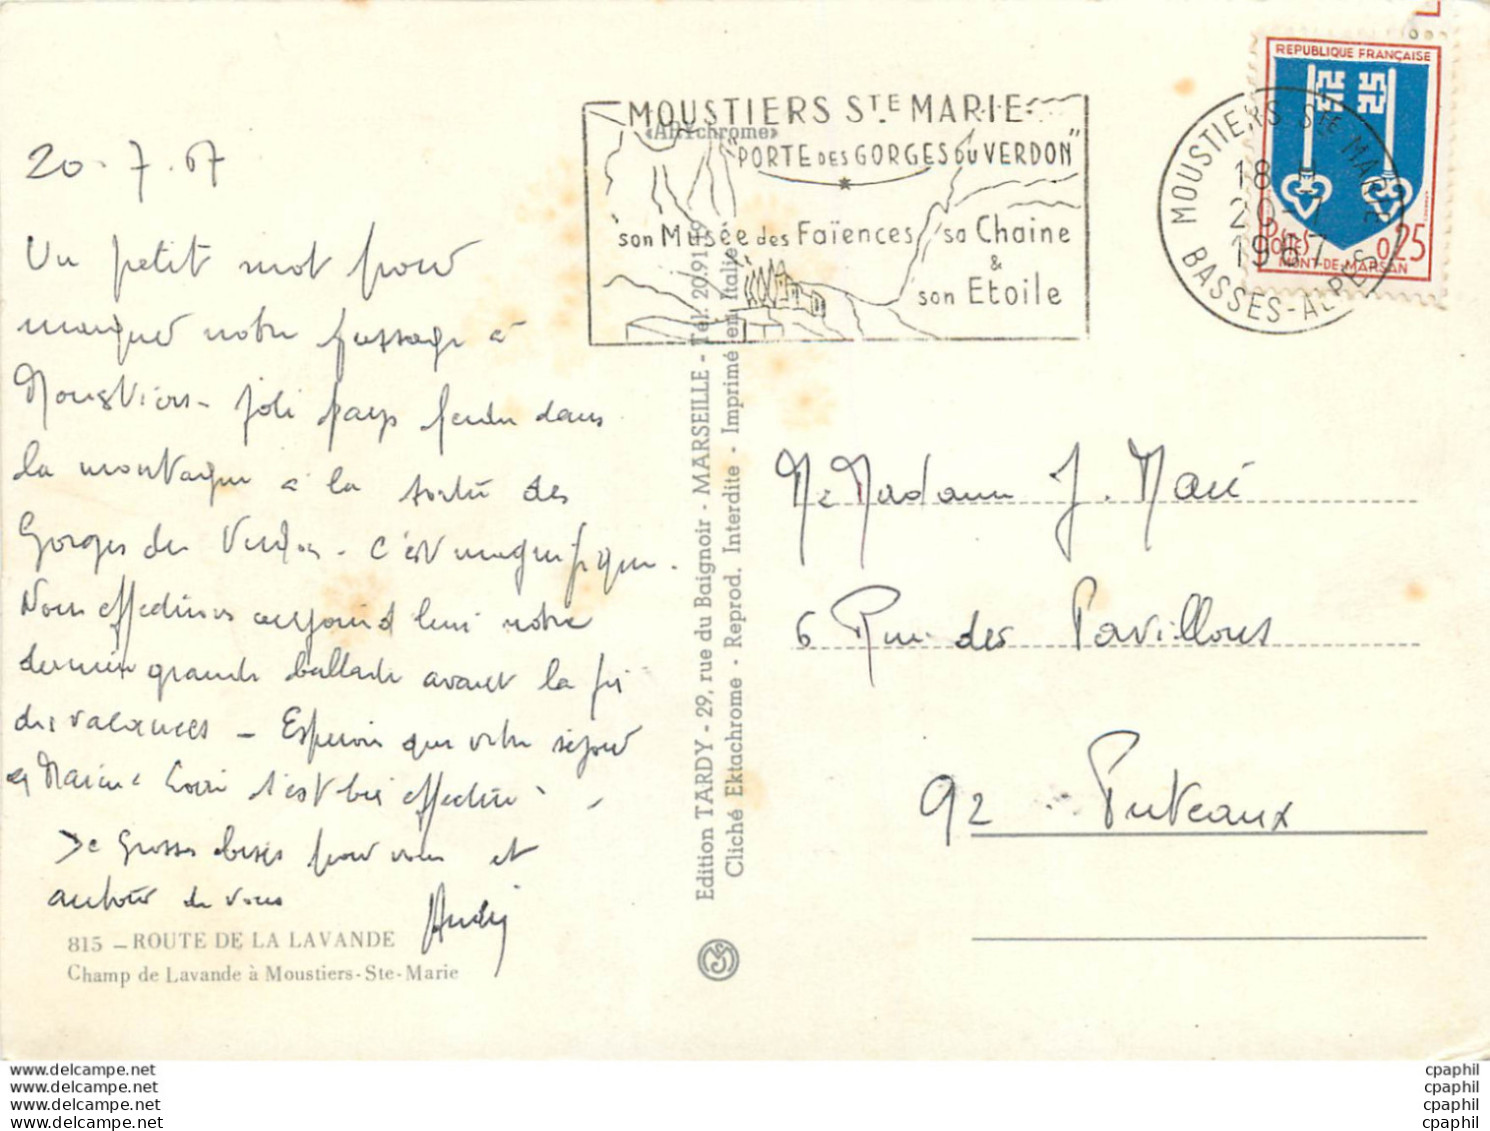 20.7.67
Un petit mot pour
marquer notre passage à
Moustiers - joli pays perdu dans
la montagne à la sortie des
Gorges du Verdon - c'est magnifique.
Nous effectuons aujourd'hui notre
dernière grande ballade avant la fin
des vacances - Espérons que votre séjour
s'est bien effectué
De grosses bises pour vous et
autour de vous
815 - ROUTE DE LA LAVANDE
Champ de Lavande à Moustiers-Ste-Marie
Edition TARDY - 29, rue du Baignoir - MARSEILLE - Tél. 20.91.19
Cliché Ektachrome - Reprod. Interdite - Imprimé en Italie
«ARTchrome»
MOUSTIERS STE MARIE
"PORTE DES GORGES DU VERDON"
son Musée des Faïences sa Chaine
&
son Etoile
MOUSTIERS STE MARIE
18 H
20-7
1967
BASSES-ALPES
REPUBLIQUE FRANÇAISE
POSTES 0,25
MONT-DE-MARSAN
Madame J.
6 Rue des Pavillons
92 Puteaux
www.delcampe.net
www.delcampe.net
www.delcampe.net
www.delcampe.net
cpaphil
cpaphil
cpaphil
cpaphil